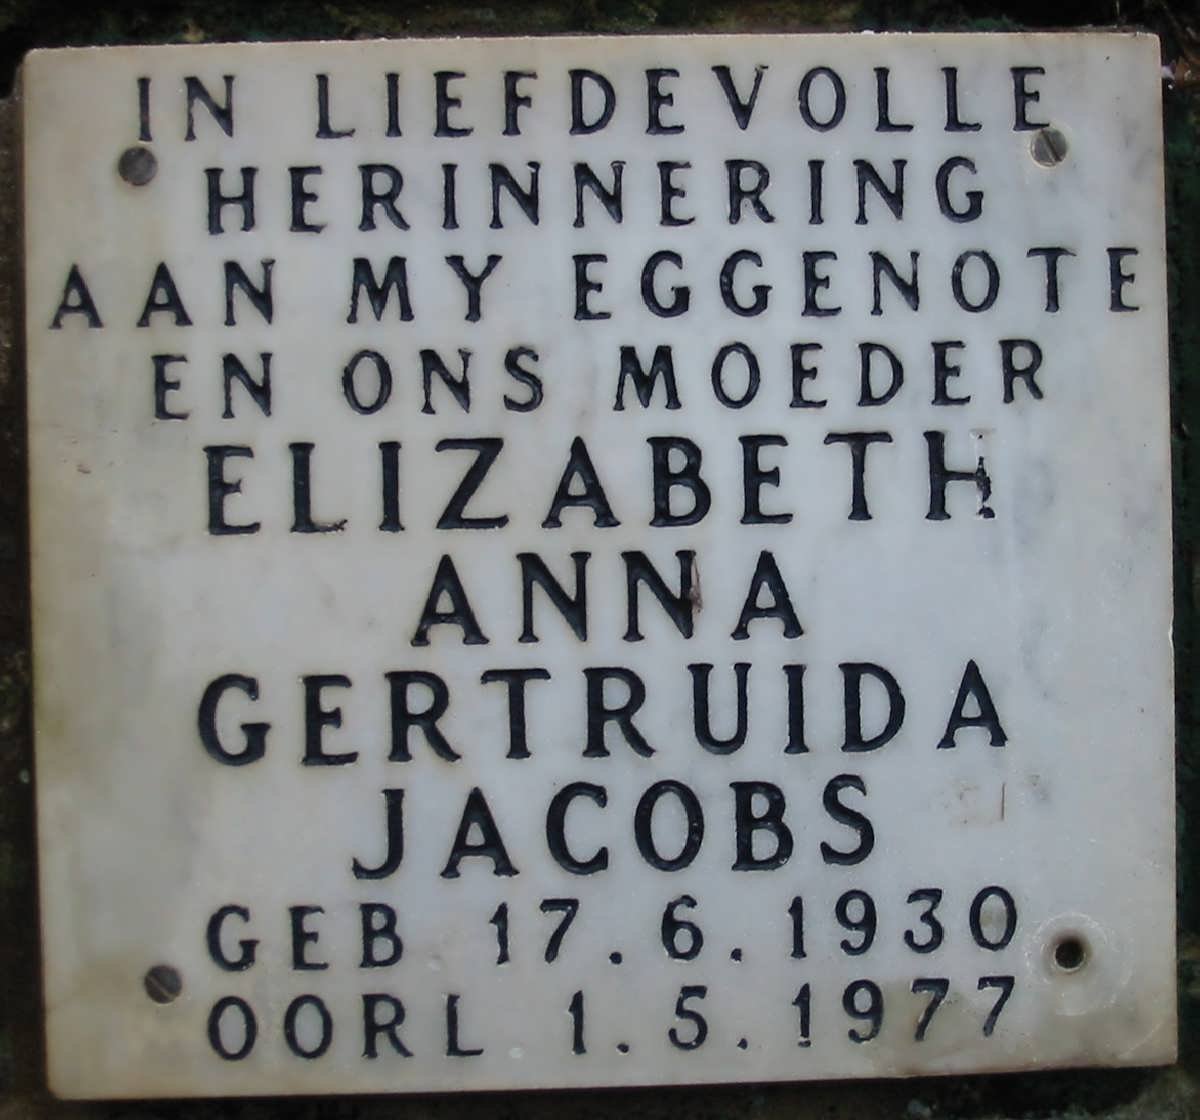 IN LIEFDEVOLLE
HERINNERING
AAN MY EGGENOTE
EN ONS MOEDER
ELIZABETH
ANNA
GERTRUIDA
JACOBS
GEB 17.6.1930
OORL 1.5.1977